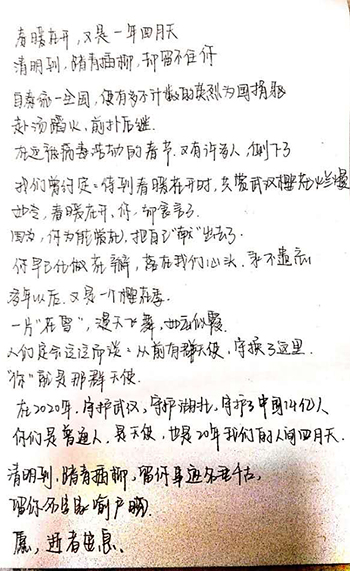 春暖花开，又是一年四月天
清明到，踏青插柳，却留不住你
自秦统一全国，便有多不计数的英烈为国捐躯
赴汤蹈火，前扑后继.
在这被病毒浩劫的春节.又有许多人，倒下了
我们曾约定：待到春暖花开时，共赏武汉樱花烂漫
如今，春暖花开，你，却食言了.
因为，你为能赏花，把自己"献"出去了
你早已化做花瓣，落在我们心头，永不遗忘
多年以后.又是一个樱花季.
一片"花雪"，漫天飞舞，如云似霞.
人们定会这边而谈：从前有群天使，守候了这里.
"你"就是那群天使.
在2020年，守护武汉，守护湖北，守护了中国14亿人
你们是普通人，是天使，也是20年我们的人间四月天.
清明到，踏青插柳，留你身迹名垂千古，
留你不皆
愿，逝者安息.